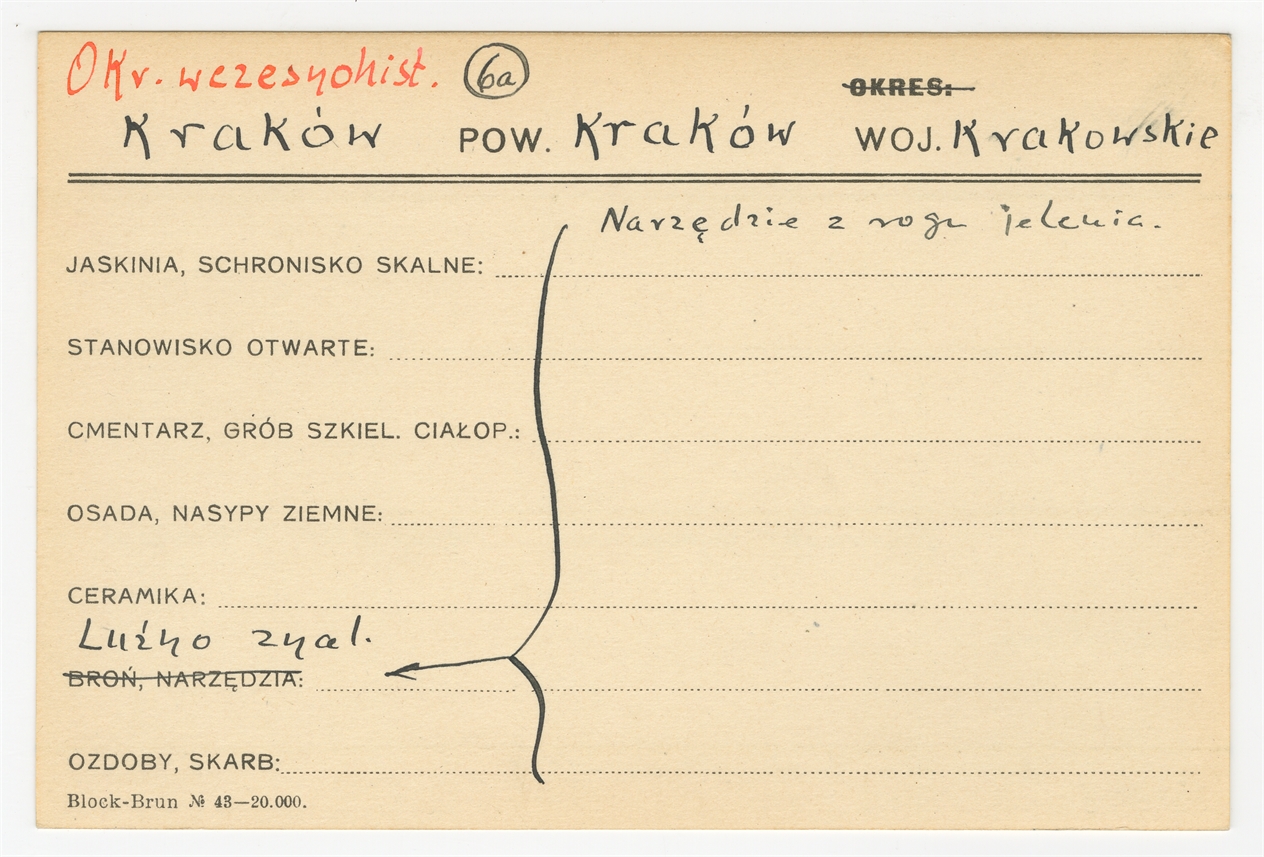 Okr. wczesnohist. 6a
OKRES:
Kraków POW. Kraków WOJ. Krakowskie
Narzędzie z rogu jelenia.
JASKINIA, SCHRONISKO SKALNE:
STANOWISKO OTWARTE:
CMENTARZ, GRÓB SZKIEL. CIAŁOP.:
OSADA, NASYPY ZIEMNE:
CERAMIKA:
Luźno znal.
BROŃ, NARZĘDZIA:
OZDOBY, SKARB:
Block-Brun № 43—20.000.